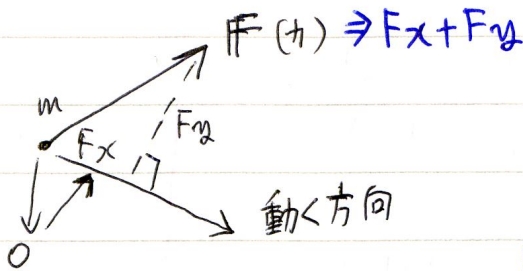 F (力) ⇒ Fx + Fy
m
Fx
Fy
動く方向
O